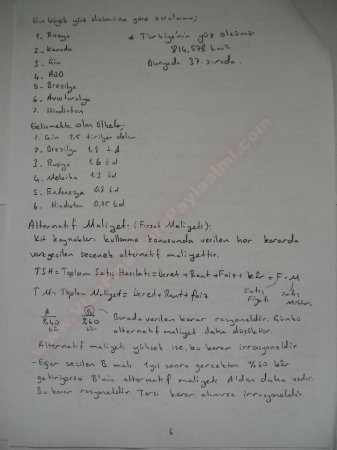 En büyük yüz ölçümüne göre sıralama;
1. Rusya * Türkiye'nin yüz ölçümü
2. Kanada 814.578 km²
3. Çin Dünyada 37. sırada.
4. ABD
5. Brezilya
6. Avusturalya
7. Hindistan
Gelişmekte olan ülkeler;
1. Çin 7,5 trilyon dolar
2. Brezilya t d
3. Rusya t d
4. Meksika t d
5. Endonezya 0.8 t d
6. Hindistan t d
Alternatif Maliyet: (Fırsat Maliyeti):
Kıt kaynakları kullanma konusunda verilen her kararda
vazgeçilen seçenek alternatif maliyettir.
TSH = Toplam Satış Hasılatı = Ücret + Rant + Faiz + kâr = F . M
Satış Fiyatı Satış Miktarı
TM = Toplam Maliyet = Ücret + Rant + faiz
A B Burada verilen karar rasyoneldir. Çünkü
%40 %60 alternatif maliyet daha düşüktür.
Alternatif maliyet yüksek ise, bu karar irrasyoneldir.
- Eğer seçilen B malı 1 yıl sonra gerçekten %60 kâr
getiriyorsa B'nin alternatif maliyeti A'dan daha azdır.
Bu karar rasyoneldir. Tersi karar alınırsa irrasyoneldir.
6